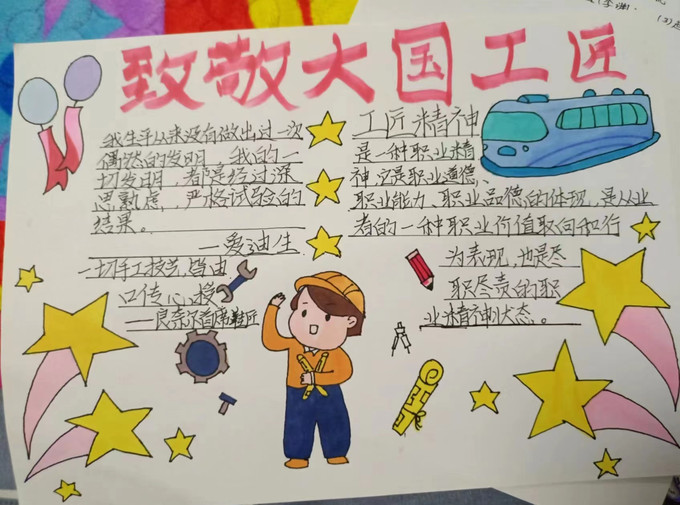 致敬大国工匠
我生平从来没有做出过一次
偶然的发明，我的一
切发明，都是经过深
思熟虑，严格试验的
结果。
—爱迪生
一切手工技艺，皆由
口传心授
——良奈尔首席鞋匠
工匠精神
是一种职业精
神，它是职业道德、
职业能力、职业品德的体现，是从业
者的一种职业价值取向和行
为表现，也是尽
职尽责的职
业精神状态。